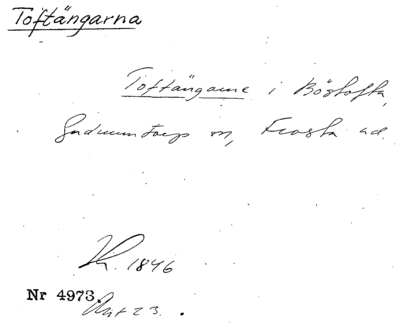 Toftängarna
Toftängarne i Böstofta,
Gudmuntorps sn, Frosta hd.
Kr. 1846
Nr 4973.
Akt 23.